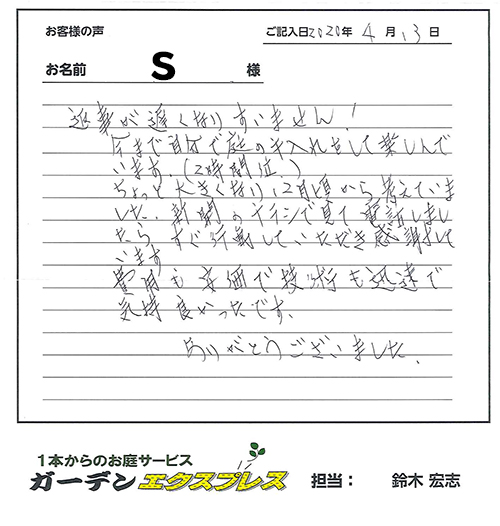 お客様の声
ご記入日2020年 4月 13日
お名前 S 様
返事が遅くなりすいません!
今まで自分で庭の手入れをして楽しんで
います。(2時間位。)
ちょっと大きくなり12月頃から考えていま
した。新聞のチラシで見て電話しまし
たら、すぐ行動していただき感謝して
います
費用も安価で技術も迅速で
気持良かったです。
ありがとうございました.
1本からのお庭サービス
ガーデンエクスプレス 担当: 鈴木 宏志